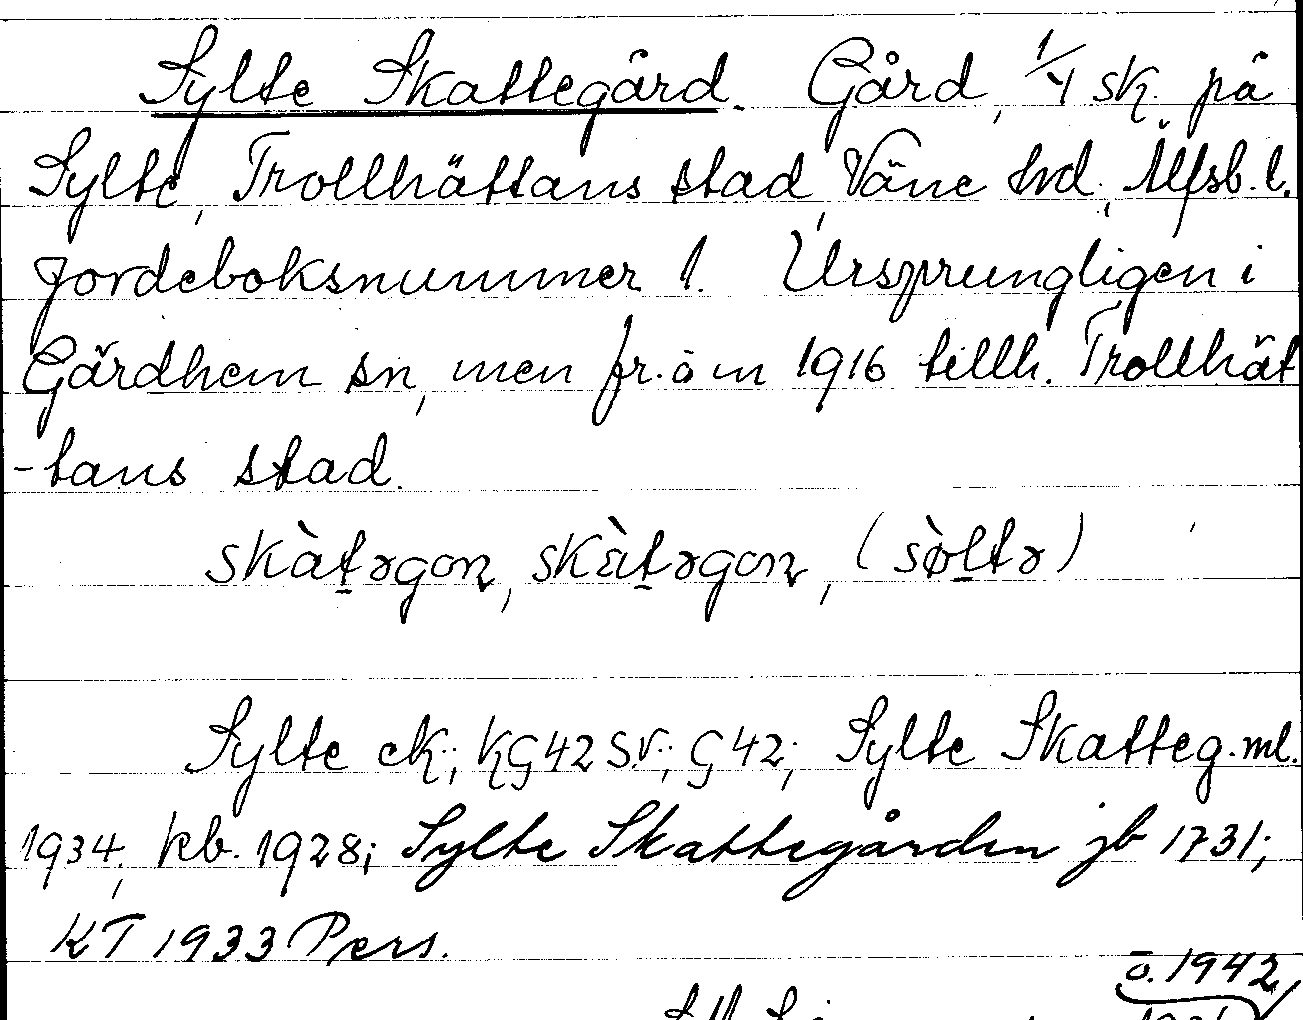 Sylte Skattegård. Gård, 1/4 sk. på
Sylte, Trollhättans stad, Väne hd., Älfsb. l.
Jordeboksnummer 1. Ursprungligen i
Gärdhem sn, men fr. o m 1916 tillh. Trollhät
-tans stad.
skàt̠əgoɳ, skàt̠əgoɳ, (sø̀l̠tə)
Sylte ek.; KG42SV.; G42; Sylte Skatteg. ml.
1934, kb. 1928; Sylte Skattegården jb 1731;
KT 1933 Pers.
o. 1942